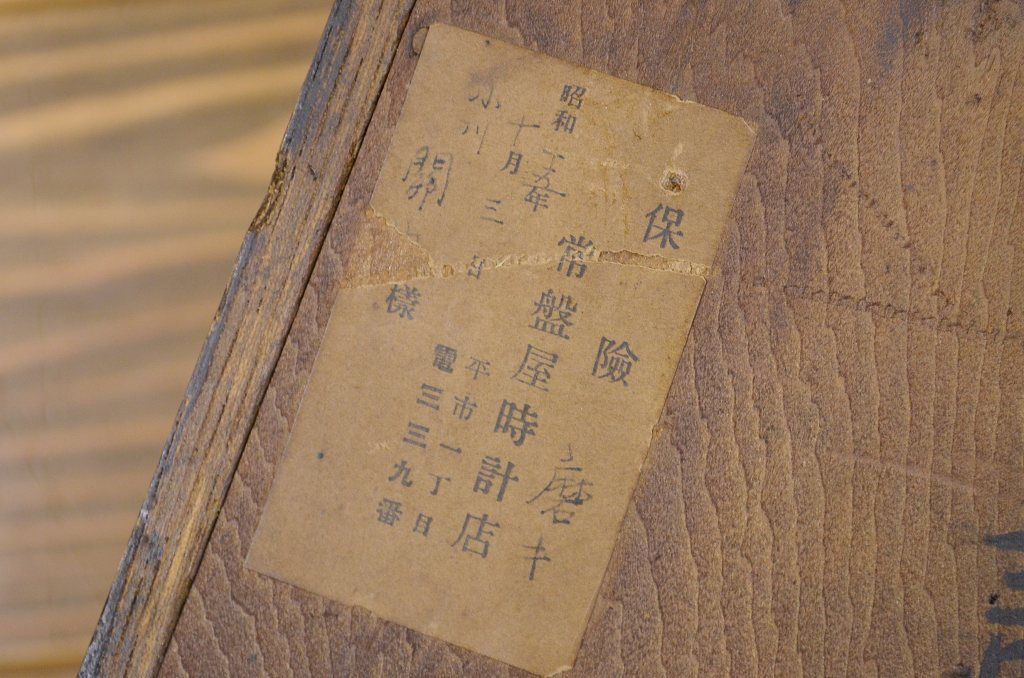 保險
磨キ
昭和十五年
十月
三年
常盤屋時計店
平市一丁目
電三三九番
小川
關
樣